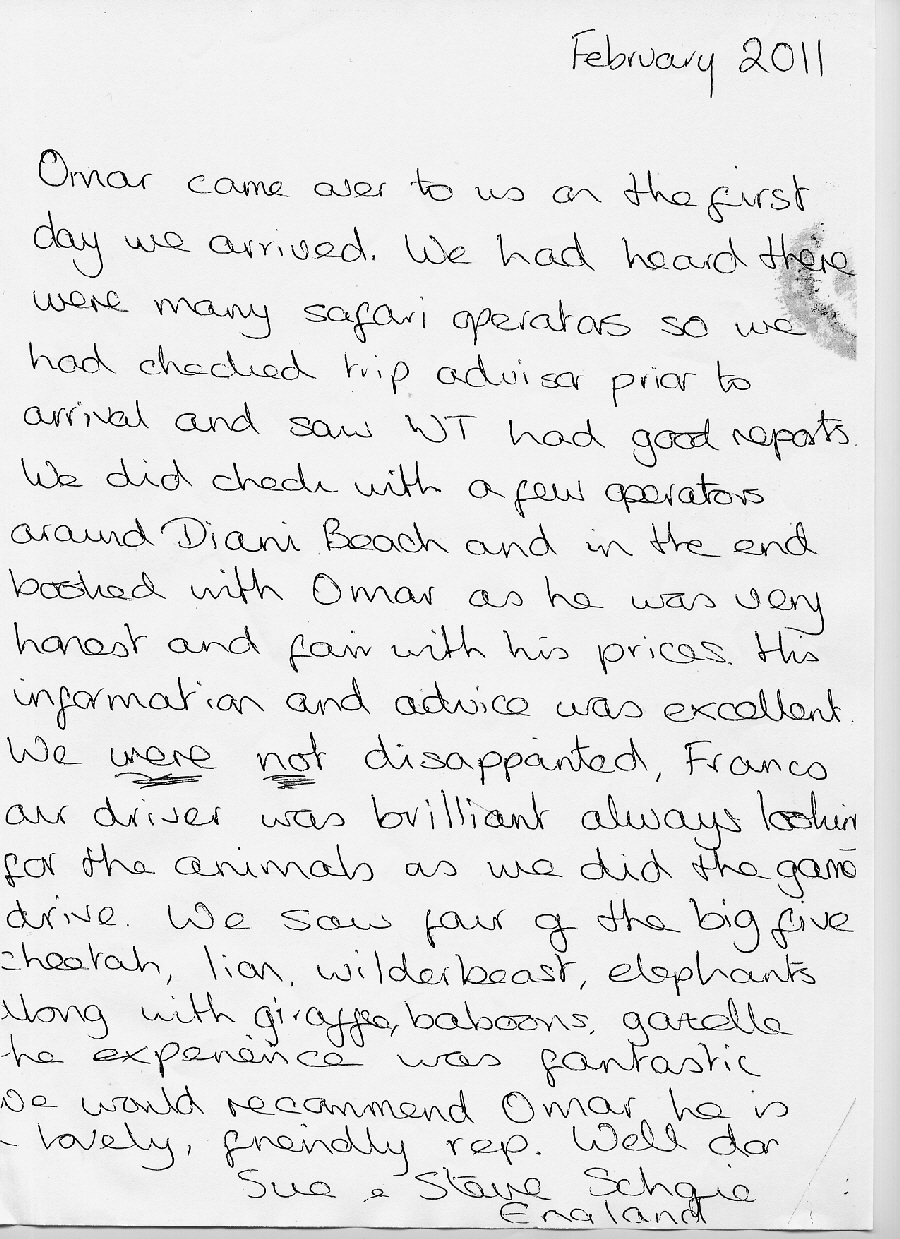 February 2011
Omar came over to us on the first
day we arrived. We had heard there
were many safari operators so we
had checked trip advisor prior to
arrival and saw WT had good reports.
We did check with a few operators
around Diani Beach and in the end
booked with Omar as he was very
honest and fair with his prices. His
information and advice was excellent.
We were not disappointed, Franco
our driver was brilliant always lookin
for the animals as we did the game
drive. We saw four of the big five
cheetah, lion, wilderbeast, elephants
along with giraffe, baboons, gazelle
he experience was fantastic
We would recommend Omar he is
lovely, friendly rep. Well don
Sue & Steve
England